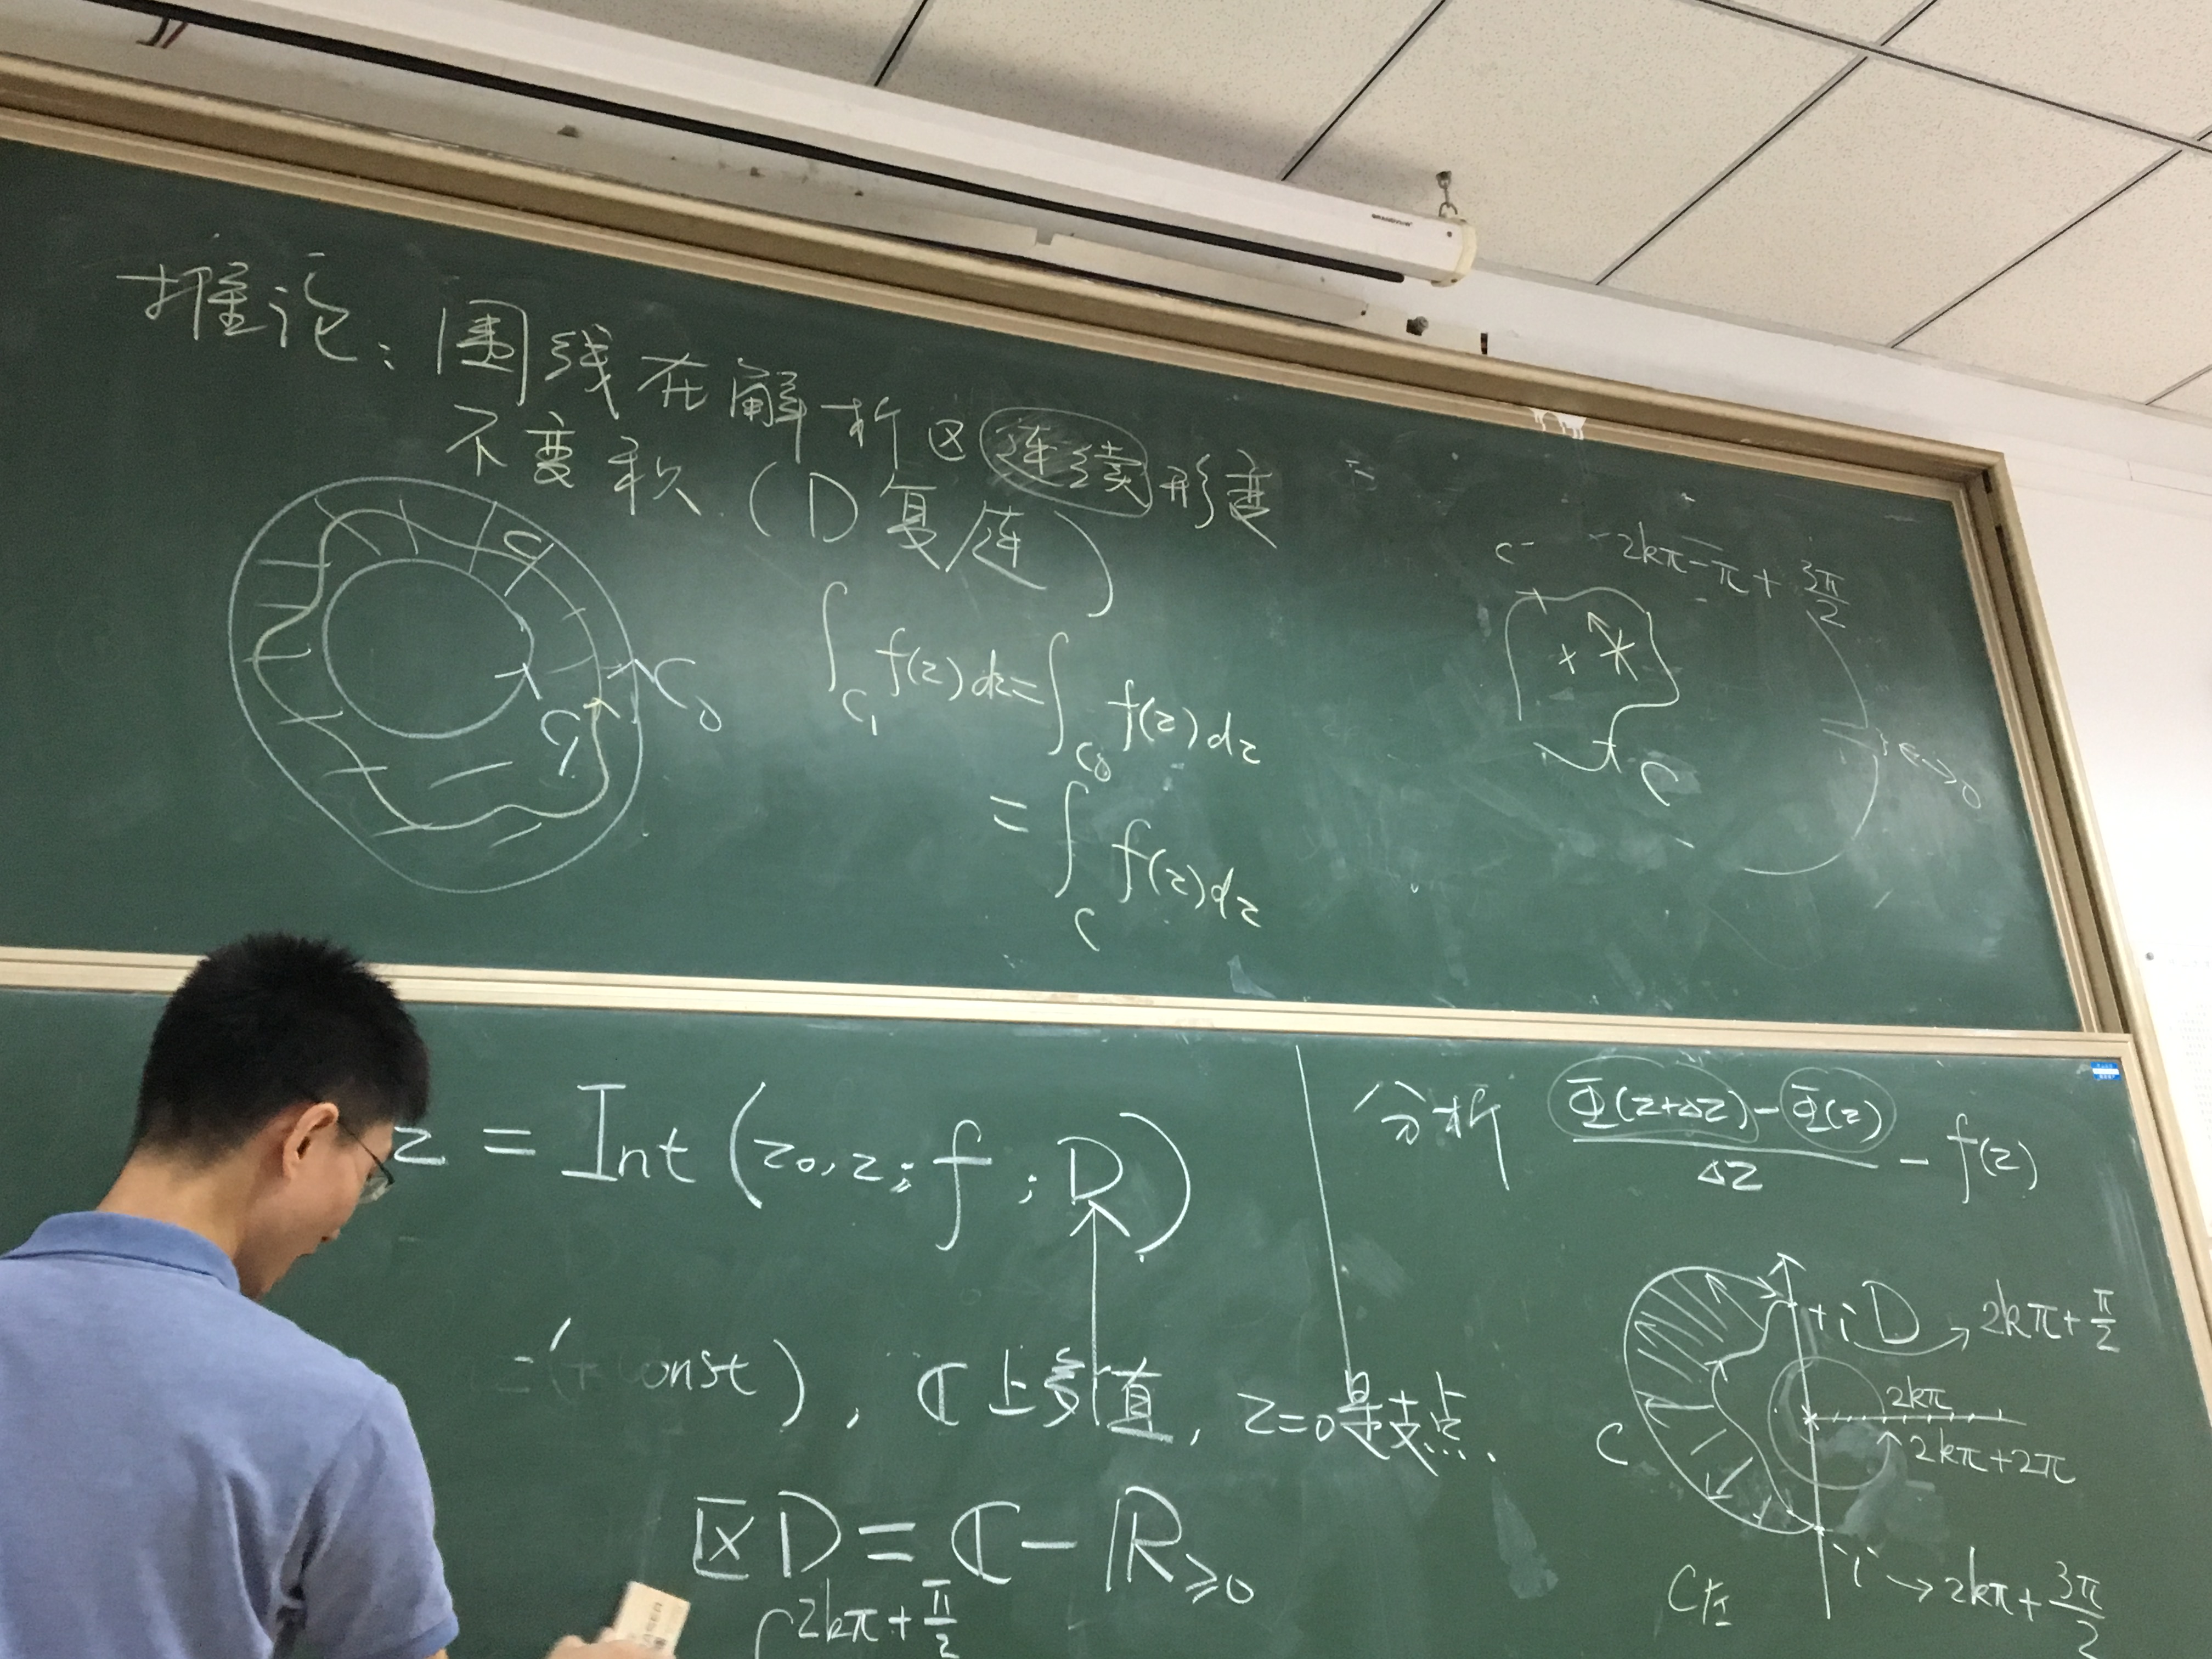 推论：围线在解析区连续形变
不变积.（D复连）
C₁
C₀
C₁
∫_{C₁} f(z)dz = ∫_{C₀} f(z)dz
= ∫_C f(z)dz
C⁻
2kπ-π+3π/2
C
ε→0
z = Int(z₀,z;f;D)
const), ℂ上多值, z=0是支点.
区D=ℂ-ℝ≥0
2kπ+π/2
分析 (Φ(z+Δz)-Φ(z))/Δz - f(z)
+i D → 2kπ+π/2
2kπ
2kπ+2π
C
-i → 2kπ+3π/2
C左